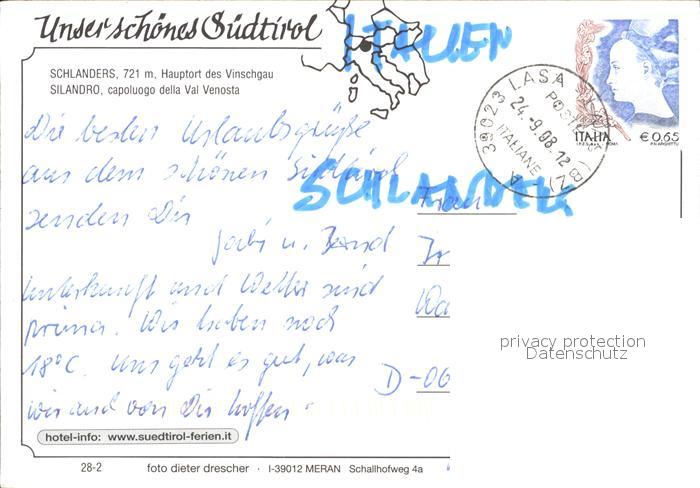 Unser schönes Südtirol
ITALIEN
SCHLANDERS, 721 m, Hauptort des Vinschgau
SILANDRO, capoluogo della Val Venosta
39023 LASA (BZ)
24.-9.08.12
POSTE ITALIANE
ITALIA € 0,65
I.P.Z.S. S.p.A. - ROMA
Die besten Urlaubsgrüße
aus dem schönen Südtirol
senden Dir
Gabi u. Bernd
SCHLANDERS
Frau
Unterkunft und Wetter sind
prima. Wir haben noch
18°C. Uns geht es gut, was
wir auch von Dir hoffen.
D-06
privacy protection
Datenschutz
hotel-info: www.suedtirol-ferien.it
28-2 foto dieter drescher · I-39012 MERAN Schallhofweg 4a